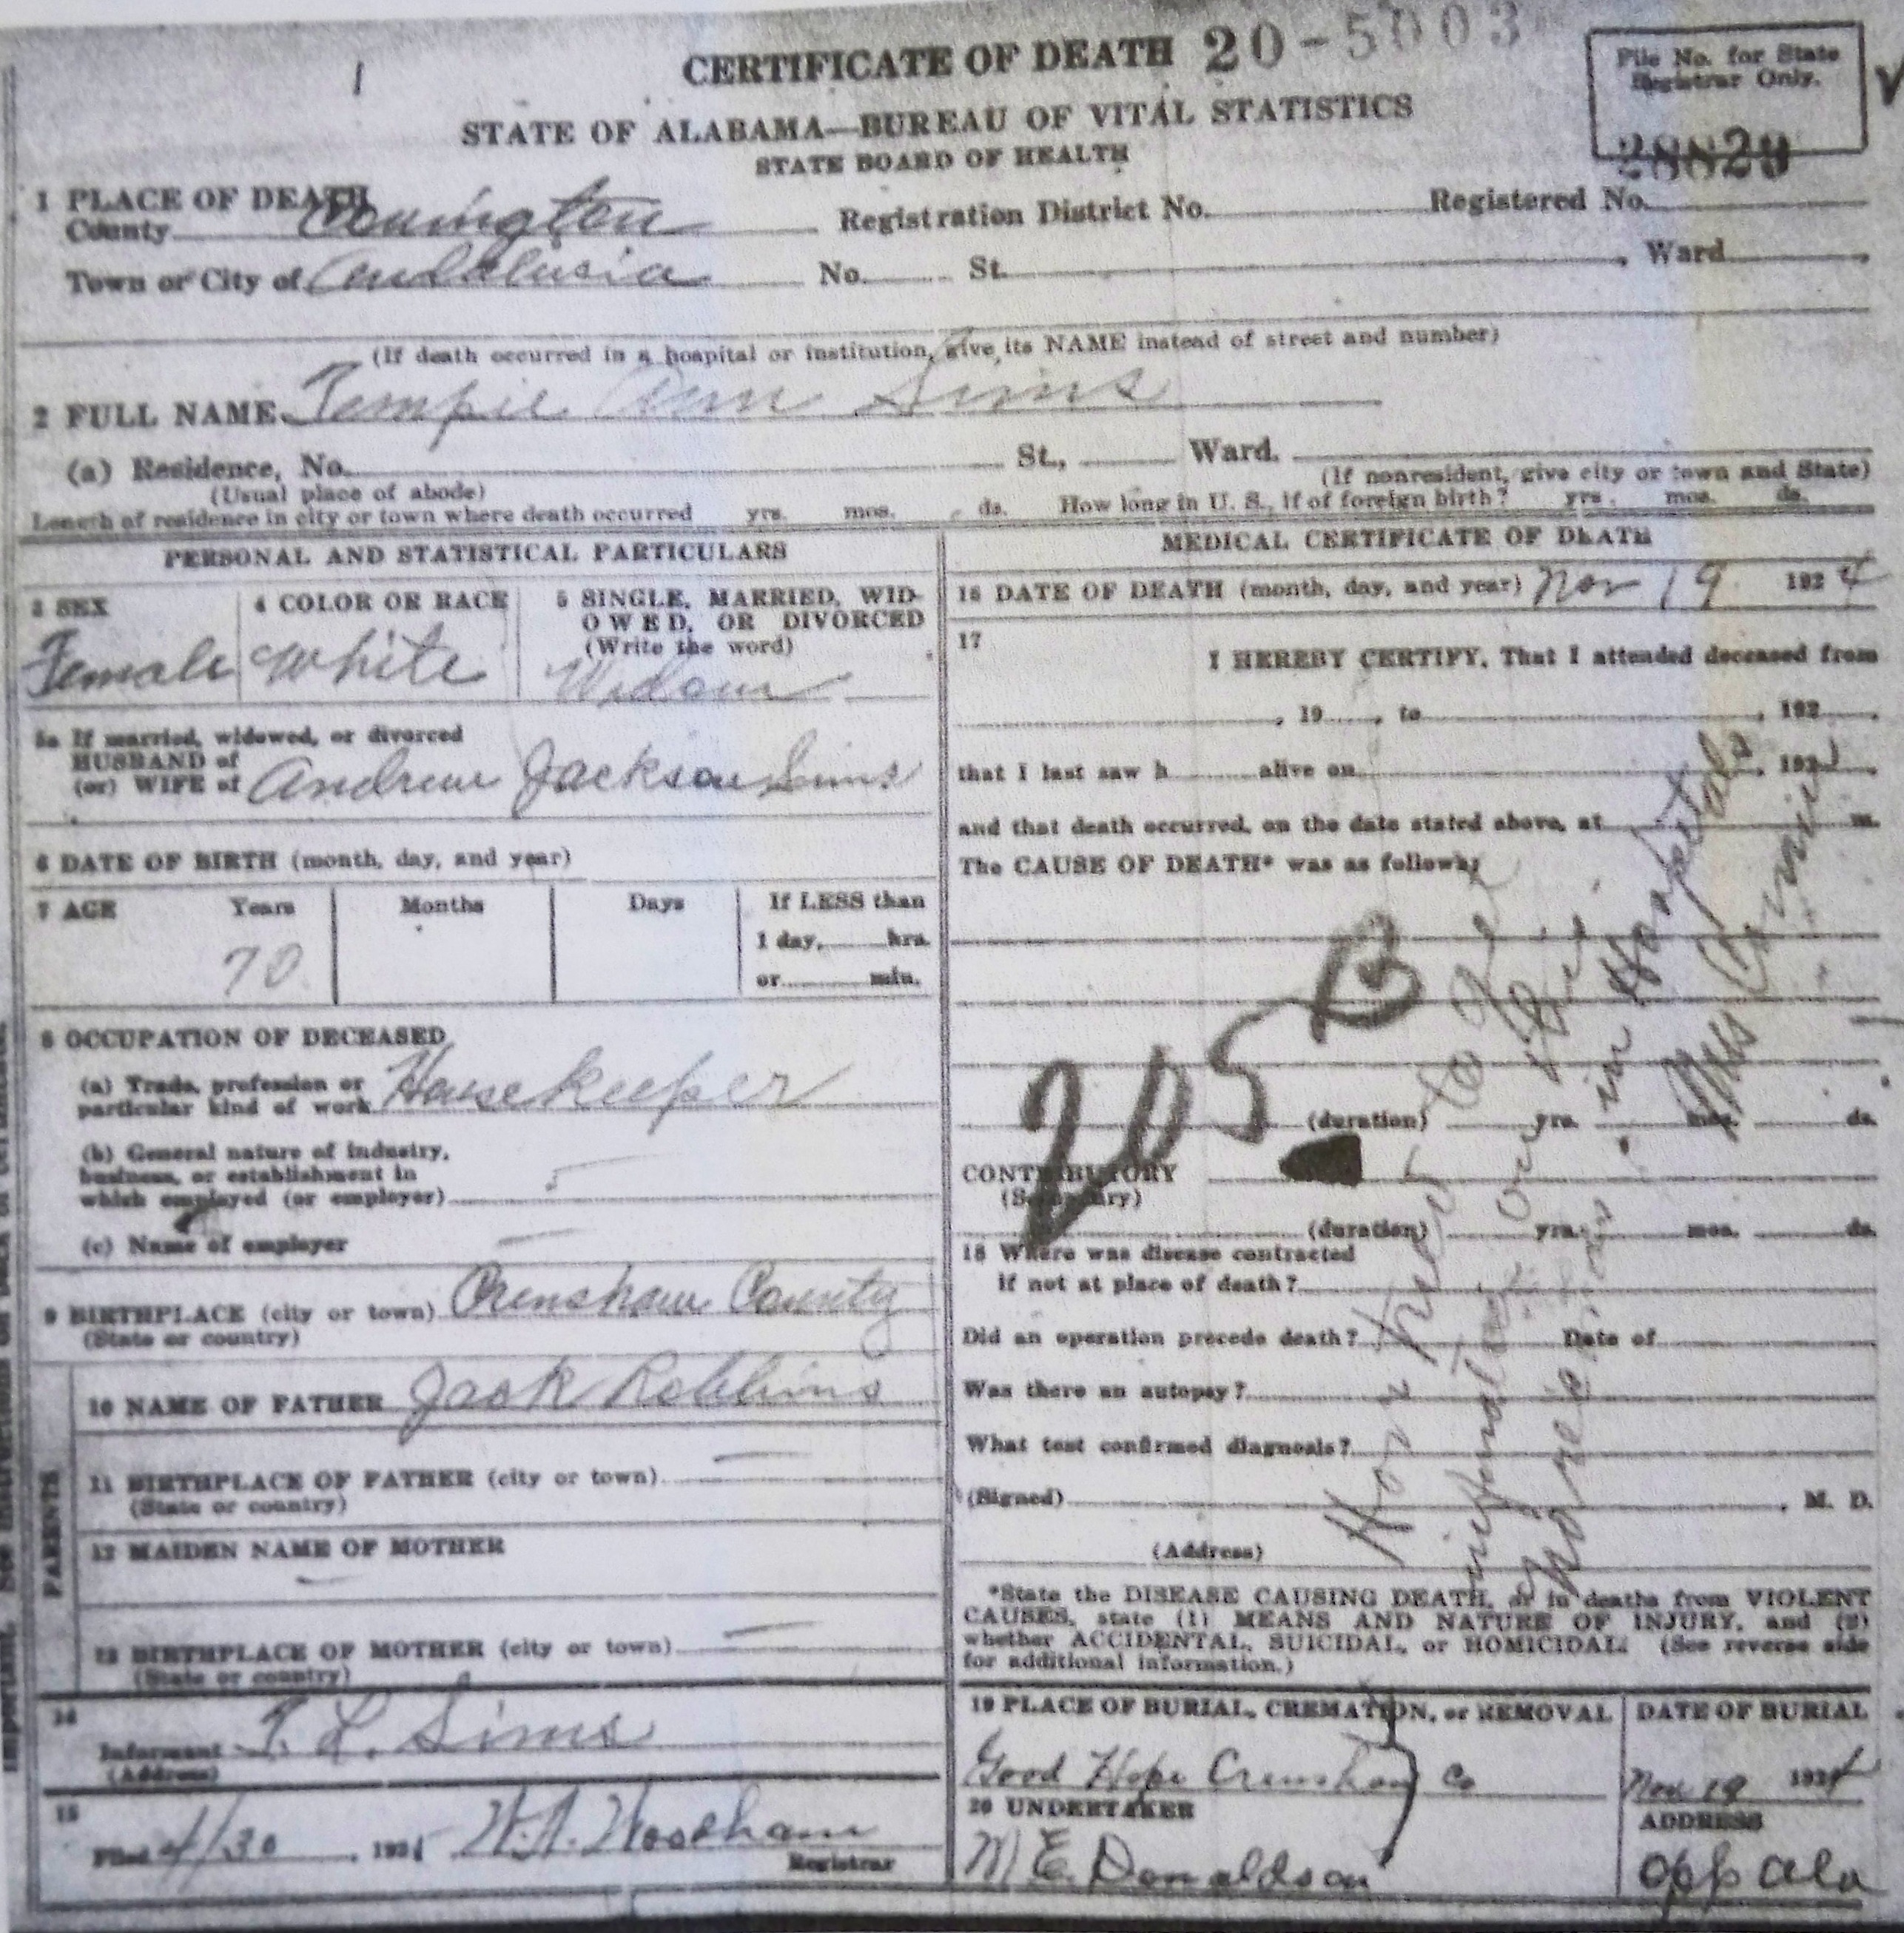 CERTIFICATE OF DEATH 20-5003
File No. for State
Registrar Only.
28829
STATE OF ALABAMA—BUREAU OF VITAL STATISTICS
STATE BOARD OF HEALTH
1 PLACE OF DEATH
County Covington Registration District No. Registered No.
Town or City of Andalusia No. St. , Ward ,
(If death occurred in a hospital or institution, give its NAME instead of street and number)
2 FULL NAME Tempie Ann Sims
(a) Residence, No. St., Ward.
(Usual place of abode) (If nonresident, give city or town and State)
Length of residence in city or town where death occurred yrs. mos. ds. How long in U. S., if of foreign birth? yrs. mos. ds.
PERSONAL AND STATISTICAL PARTICULARS
3 SEX
Female
4 COLOR OR RACE
White
5 SINGLE, MARRIED, WID-
OWED, OR DIVORCED
(Write the word)
Widow
5a If married, widowed, or divorced
HUSBAND of
(or) WIFE of Andrew Jackson Sims
6 DATE OF BIRTH (month, day, and year)
7 AGE Years Months Days If LESS than
1 day, hrs.
70 or min.
8 OCCUPATION OF DECEASED
(a) Trade, profession or
particular kind of work Housekeeper
(b) General nature of industry,
business, or establishment in
which employed (or employer)
(c) Name of employer
9 BIRTHPLACE (city or town) Crenshaw County
(State or country)
PARENTS
10 NAME OF FATHER Jack Robbins
11 BIRTHPLACE OF FATHER (city or town)
(State or country)
12 MAIDEN NAME OF MOTHER
13 BIRTHPLACE OF MOTHER (city or town)
(State or country)
14
Informant T. L. Sims
(Address)
15
Filed 4/30, 192 W.A. Woodham
Registrar
MEDICAL CERTIFICATE OF DEATH
16 DATE OF DEATH (month, day, and year) Nov 19 1924
17
I HEREBY CERTIFY, That I attended deceased from
, 19 , to , 192 .
that I last saw h alive on , 192 .
and that death occurred, on the date stated above, at m.
The CAUSE OF DEATH* was as follows:
205
(duration) yrs. mos. ds.
CONTRIBUTORY
(Secondary)
(duration) yrs. mos. ds.
18 Where was disease contracted
if not at place of death?
Did an operation precede death? Date of
Was there an autopsy?
What test confirmed diagnosis?
(Signed) , M. D.
(Address)
in Hospital
*State the DISEASE CAUSING DEATH, or in deaths from VIOLENT
CAUSES, state (1) MEANS AND NATURE OF INJURY, and (2)
whether ACCIDENTAL, SUICIDAL, or HOMICIDAL. (See reverse side
for additional information.)
19 PLACE OF BURIAL, CREMATION, or REMOVAL
Good Hope Crenshaw Co
DATE OF BURIAL
Nov 19 1924
20 UNDERTAKER
M E. Donaldson
ADDRESS
Opp Ala